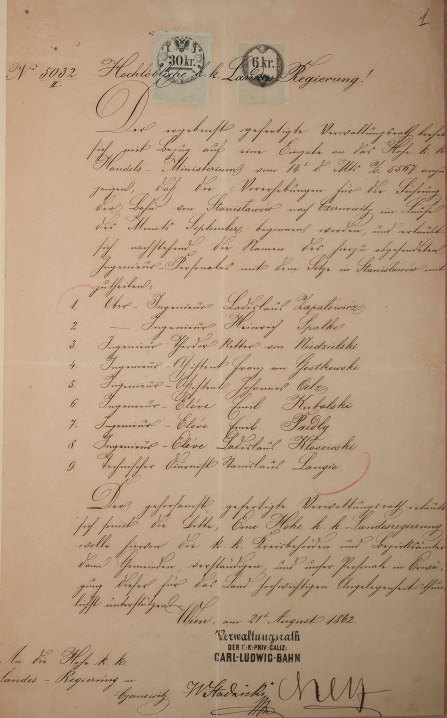 1
No 5032
II.
30 kr.
6 kr.
Hochlöbliche k. k. Landes-Regierung!
Der ergebenst gefertigte Verwaltungsrath beehrt
sich mit Bezug auf eine Eingabe an das Hohe k. k.
Handels-Ministerium vom 14t d. Mts Z. 5567 anzu
zeigen, daß die Vorerhebungen für die Führung
der Bahn von Stanislawów nach Czernowitz im Laufe
des Monats September begonnen werden, und erlaubt
sich nachstehend die Namen des hiezu abgesendeten
Ingenieur-Personales mit dem Sitze in Stanislawów mit
zutheilen:
1 Ober-Ingenieur Ladislaus Zapalowicz
2 — Ingenieur Heinrich Spalke
3. Ingenieur Theodor Ritter von Niedzielski
4. Ingenieur-Assistent Franz von Gostkowski
5 Ingenieur-Assistent Johannes
6 Ingenieur-Eléve Emil Kubalski
7. Ingenieur-Eléve Emil
8 Ingenieur-Eléve Ladislaus Klosowski
9. technischer Diurnist Stanislaus Langie.
Der gehorsamst gefertigte Verwaltungsrath erlaubt
sich somit die Bitte, Eine Hohe k. k. Landesregierung
wolle hievon die k. k. Kreisbehörden und Bezirksämter
dann Gemeinden verständigen, und unser Personale in Erwä
gung dieser für das Land hochwichtigen Angelegenheit thun
lichst unterstützen.
Wien, am 21t August 1862
Verwaltungsrath
DER K: K: PRIV: GALIZ:
CARL-LUDWIG-BAHN
An die Hohe k. k.
Landes-Regierung in
Czernowitz